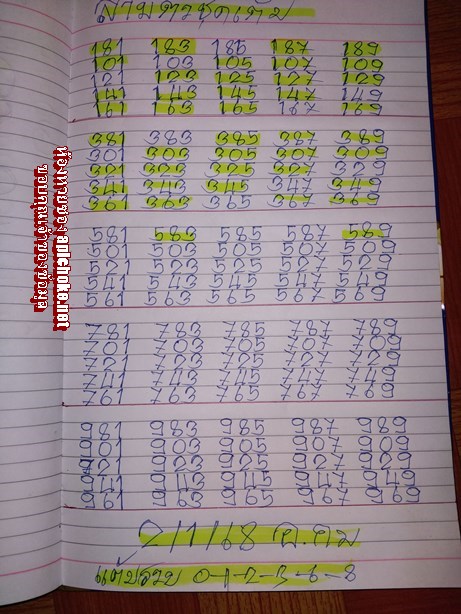 สามตัวชุดเต็ม
181 183 185 187 189
101 103 105 107 109
121 123 125 127 129
141 143 145 147 149
161 163 165 167 169
381 383 385 387 389
301 303 305 307 309
321 323 325 327 329
341 343 345 347 349
361 363 365 367 369
581 583 585 587 589
501 503 505 507 509
521 523 525 527 529
541 543 545 547 549
561 563 565 567 569
781 783 785 787 789
701 703 705 707 709
721 723 725 727 729
741 743 745 747 749
761 763 765 767 769
981 983 985 987 989
901 903 905 907 909
921 923 925 927 929
941 943 945 947 949
961 963 965 967 969
2/1/68
0-1-2-3-6-8
ห้องหวยซอง aplchoke.net
ขอบคุณเจ้าของข้อมูล